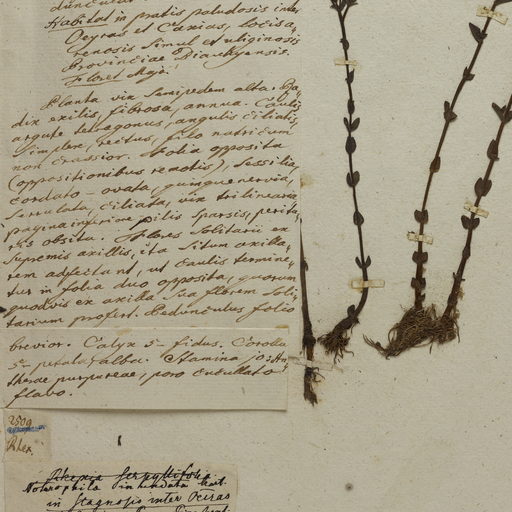 Habitat in pratis paludosis inter
Oeyras et Caxias, locis a,
renosis simul et uliginosis
Provinciae Piauhyensis.
Floret Majo.
Planta vix semipedem alta. Ra,
dix exilis, fibrosa, annua. Caulis
argute tetragonus, angulis ciliatis,
simplex, rectus, filo
non crassior. Folia opposita
(oppositionibus remotis), sessilia,
cordato-ovata, quinquenervia,
serrulata, ciliata, vix trilinearia
pagina inferiore pilis sparsis, perita,
ris obsita. Flores solitarii ex
supremis axillis, ita situm axilla,
rem adfectant, ut caulis termine,
tur in folia duo opposita, quorum
quodvis ex axilla sua florem soli,
tarium profert. Pedunculus folio
brevior. Calyx 5-fidus. Corolla
5-petala, alba. Stamina 10: An,
therae purpureae, poro cucullato
flavo.
2509
Rhex
Rhexia serpyllifol
Noterophila inundata Mart.
in stagnosis inter Oeiras